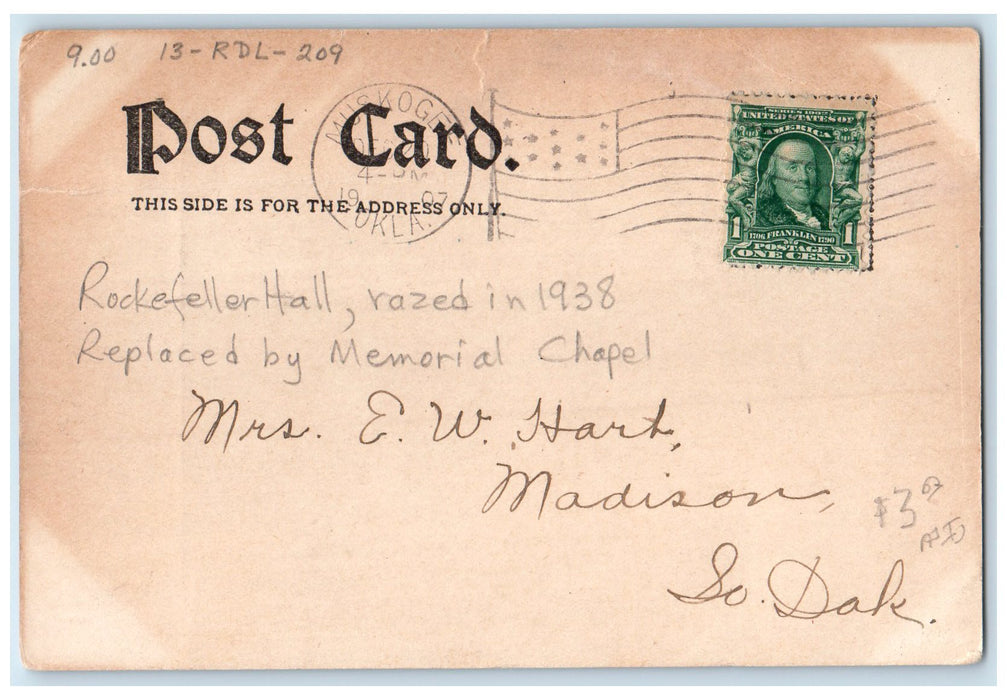 9.00 13-RDL-209
Post Card.
THIS SIDE IS FOR THE ADDRESS ONLY.
MUSKOGEE
4-PM
19 07
OKLA.
SERIES 1902
UNITED STATES OF
AMERICA
1 1
1706 FRANKLIN 1790
POSTAGE
ONE CENT
Rockefeller Hall, razed in 1938
Replaced by Memorial Chapel
Mrs. E. W. Hart,
Madison,
$3
So. Dak.